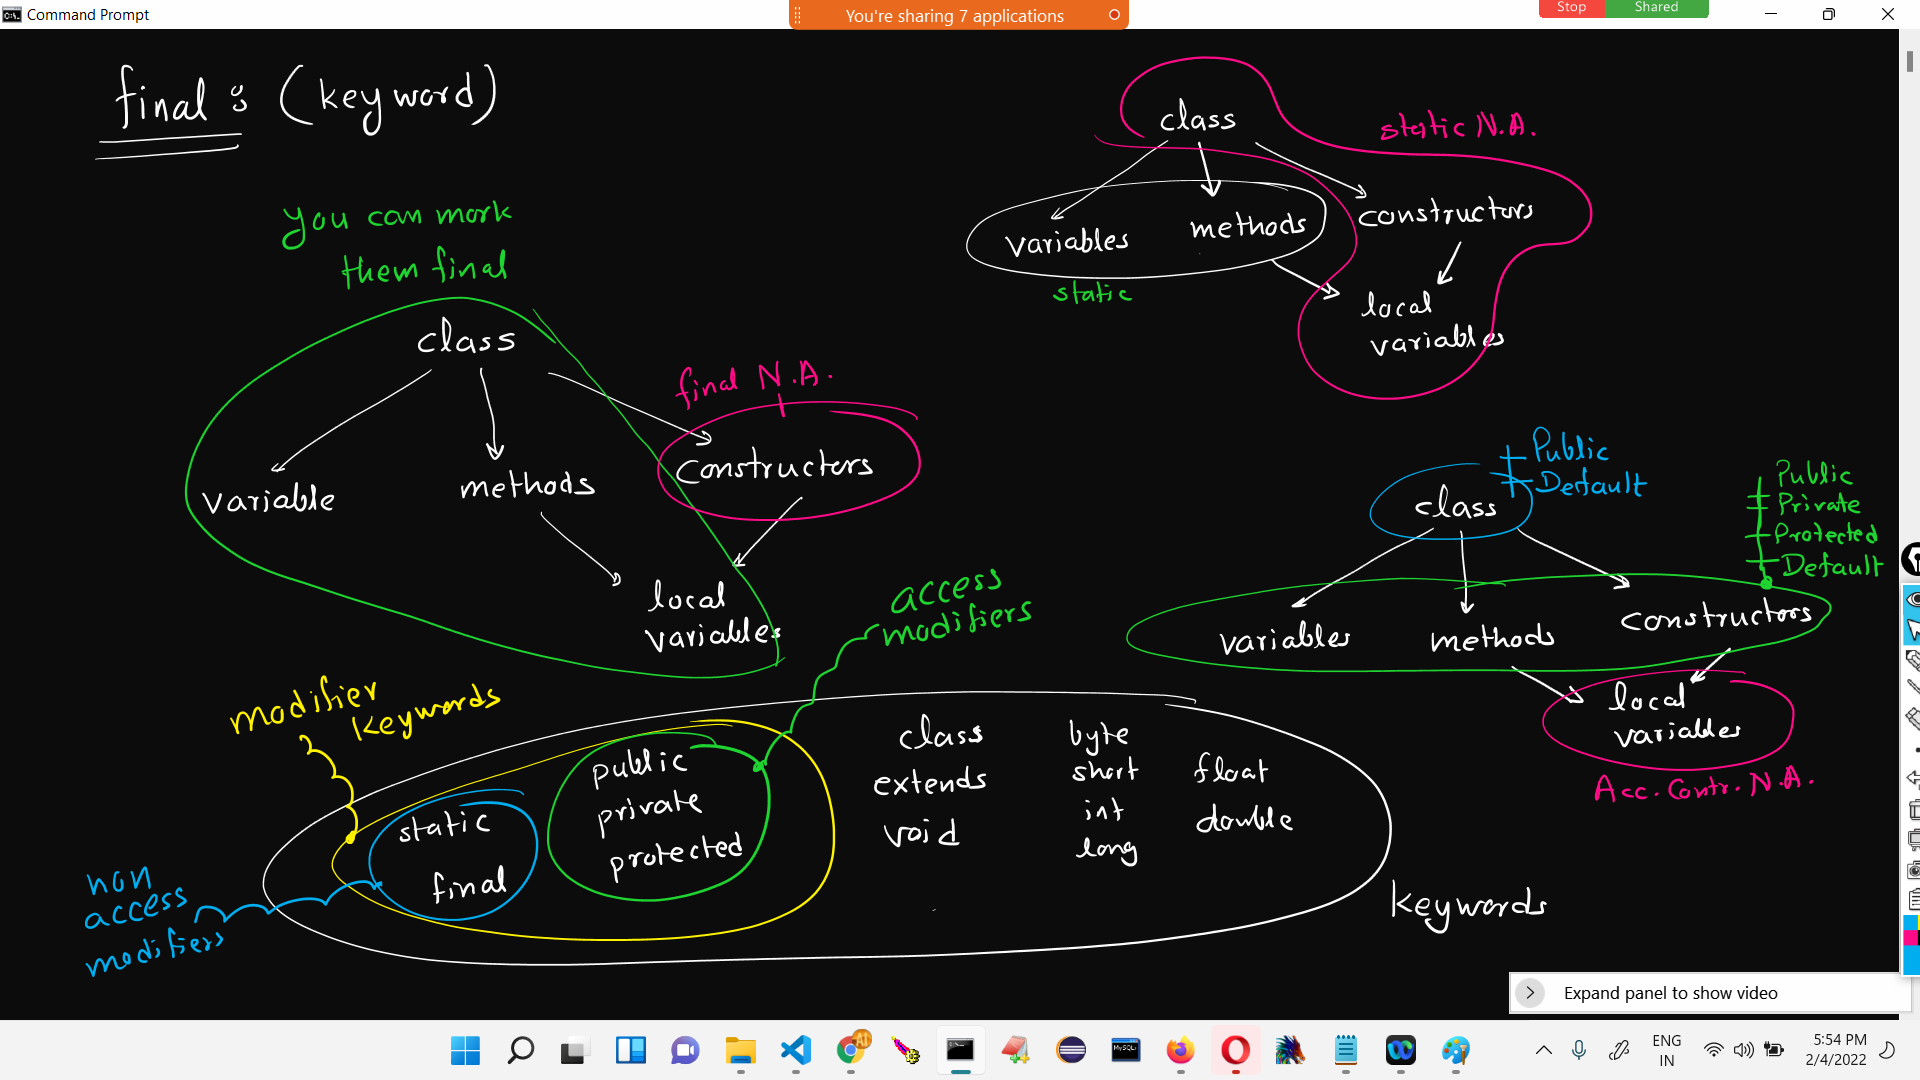 Command Prompt
You're sharing 7 applications
Stop
Shared
final : (keyword)
you can mark
them final
class
final N.A.
variable
methods
constructors
local
variables
class
static N.A.
variables
methods
constructors
static
local
variables
Public
Default
class
Public
Private
Protected
Default
variables
methods
constructors
local
variables
Acc. Contr. N.A.
access
modifiers
modifier
keywords
non
access
modifiers
static
final
public
private
protected
class
extends
void
byte
short
int
long
float
double
keywords
Expand panel to show video
AI
MySQL
ENG
IN
5:54 PM
2/4/2022